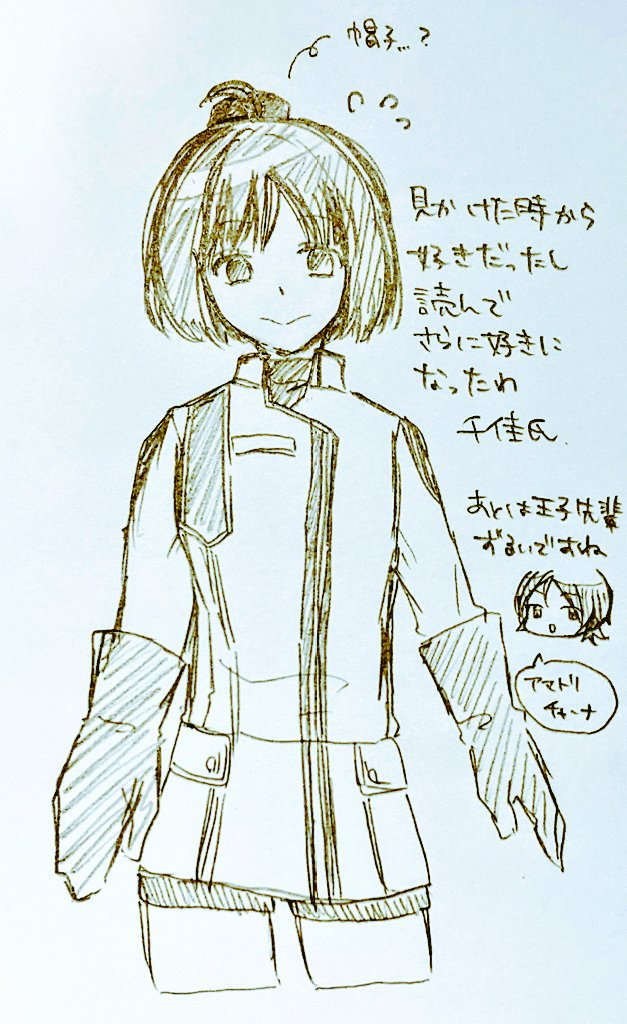 帽子…?
見かけた時から
好きだったし
読んで
さらに好きに
なったわ
千佳氏
あとは王子先輩
ずるいですね
アマトリ
チャーナ